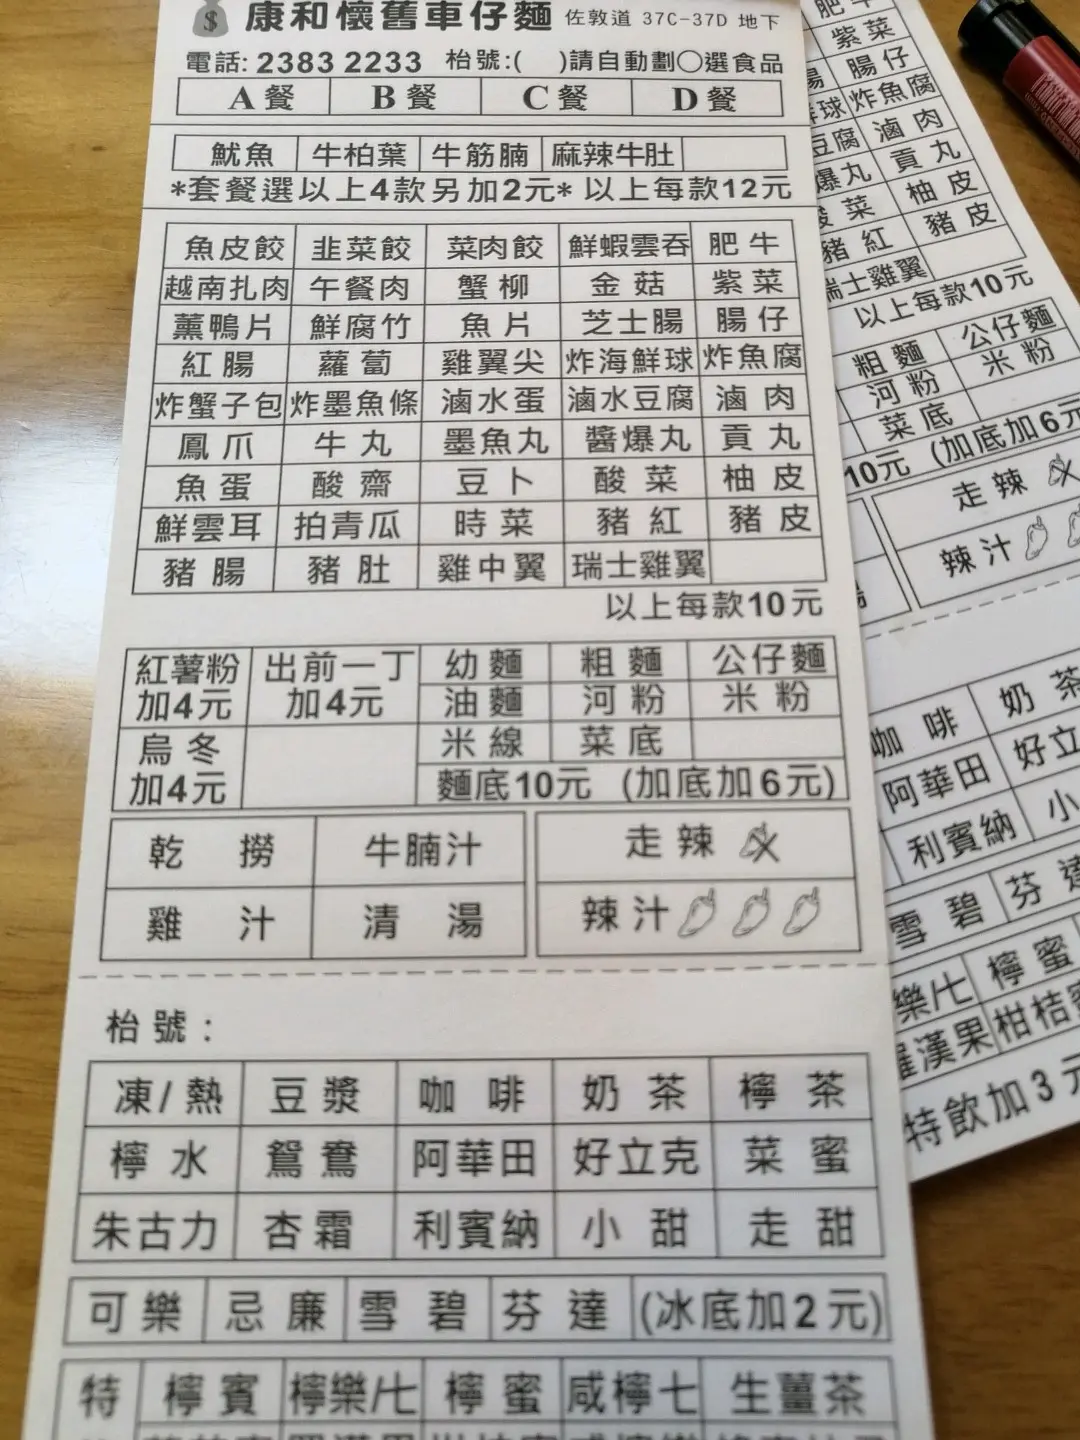 康和懷舊車仔麵 佐敦道 37C-37D 地下
電話: 2383 2233 枱號:( )請自動劃○選食品
A 餐 B 餐 C 餐 D 餐
魷魚 牛柏葉 牛筋腩 麻辣牛肚
*套餐選以上4款另加2元* 以上每款12元
魚皮餃 韭菜餃 菜肉餃 鮮蝦雲吞 肥牛
越南扎肉 午餐肉 蟹柳 金菇 紫菜
薰鴨片 鮮腐竹 魚片 芝士腸 腸仔
紅腸 蘿蔔 雞翼尖 炸海鮮球 炸魚腐
炸蟹子包 炸墨魚條 滷水蛋 滷水豆腐 滷肉
鳳爪 牛丸 墨魚丸 醬爆丸 貢丸
魚蛋 酸齋 豆卜 酸菜 柚皮
鮮雲耳 拍青瓜 時菜 豬紅 豬皮
豬腸 豬肚 雞中翼 瑞士雞翼
以上每款10元
紅薯粉 加4元 出前一丁 加4元 幼麵 粗麵 公仔麵
油麵 河粉 米粉
烏冬 加4元 米線 菜底
麵底10元 (加底加6元)
乾撈 牛腩汁 走辣
雞汁 清湯 辣汁
枱號:
凍/熱 豆漿 咖啡 奶茶 檸茶
檸水 鴛鴦 阿華田 好立克 菜蜜
朱古力 杏霜 利賓納 小甜 走甜
可樂 忌廉 雪碧 芬達 (冰底加2元)
特 檸賓 檸樂/七 檸蜜 咸檸七 生薑茶
肥牛
紫菜
腸仔
球 炸魚腐
豆腐 滷肉
爆丸 貢丸
菜 柚皮
豬紅 豬皮
瑞士雞翼
以上每款10元
粗麵 公仔麵
河粉 米粉
菜底
10元 (加底加6元
走辣
辣汁
咖啡 奶茶
阿華田 好立
利賓納 小
雪碧 芬達
樂/七 檸蜜
羅漢果 柑桔蜜
特飲加3元